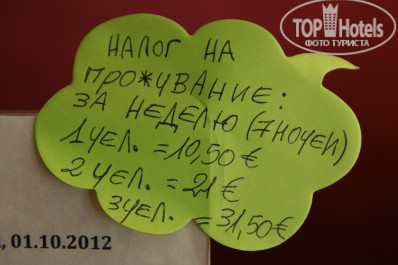 TOP Hotels
ФОТО ТУРИСТА
НАЛОГ НА
ПРОЖИВАНИЕ:
ЗА НЕДЕЛЮ (7 НОЧЕЙ)
1 ЧЕЛ. = 10,50 €
2 ЧЕЛ. = 21 €
3 ЧЕЛ. = 31,50 €
, 01.10.2012